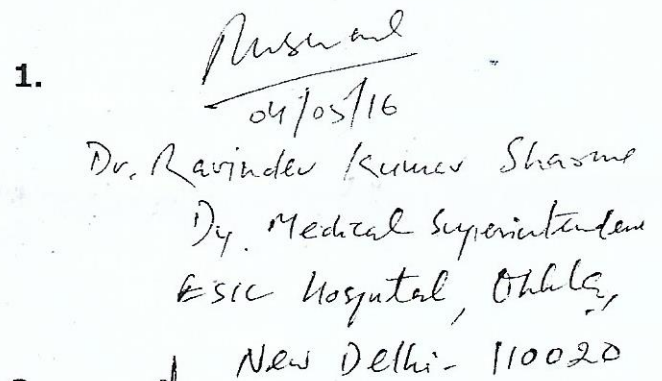 1.
04/05/16
Dr. Ravinder Kumar Sharma
Dy. Medical Superintendent
ESIC Hospital, Okhla,
New Delhi - 110020